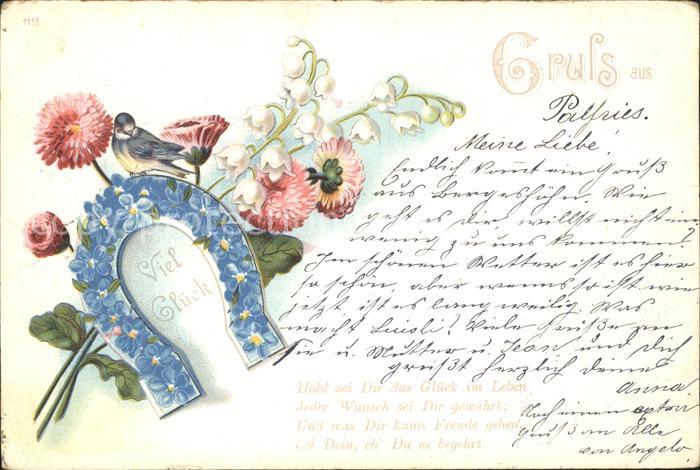 1117.
Gruß aus
Palfries.
Meine Liebe!
Endlich kommt ein Gruß
aus Bergeshöhn. Wie
geht es dir, willst nicht ein
wenig zu uns kommen?
Im schönen Wetter ist es hier
so schön, aber wenns so ist wie
jetzt ist es langweilig. Was
macht Luisli? Viele Grüße an
Sie u. Mutter u. Jean und dich
grüßt herzlich deine
Anna.
Viel
Glück
Hold sei Dir das Glück im Leben
Jeder Wunsch sei Dir gewährt;
Und was Dir kann Freude geben,
Sei Dein, eh' Du es begehrt.
Noch einen extra
Gruß an Alle
von Angelo.